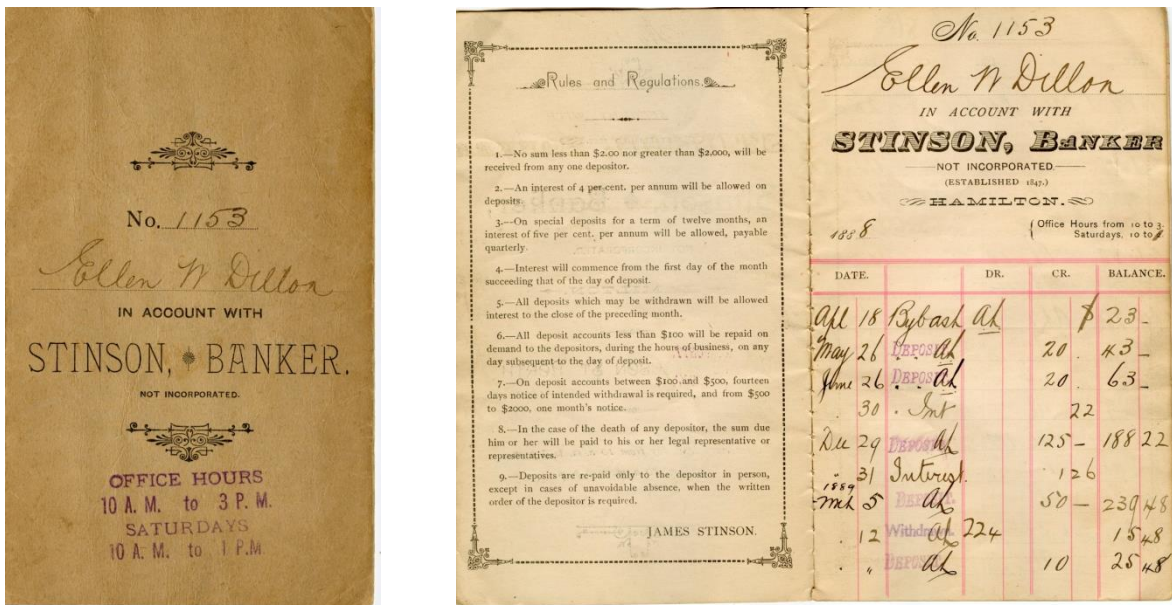 No. 1153
Ellen W Dillon
IN ACCOUNT WITH
STINSON, BANKER.
NOT INCORPORATED.
OFFICE HOURS
10 A. M. to 3 P. M.
SATURDAYS
10 A. M. to 1 P.M.
Rules and Regulations.
1.—No sum less than $2.00 nor greater than $2,000, will be
received from any one depositor.
2.—An interest of 4 per cent. per annum will be allowed on
deposits.
3.—On special deposits for a term of twelve months, an
interest of five per cent. per annum will be allowed, payable
quarterly.
4.—Interest will commence from the first day of the month
succeeding that of the day of deposit.
5.—All deposits which may be withdrawn will be allowed
interest to the close of the preceding month.
6.—All deposit accounts less than $100 will be repaid on
demand to the depositors, during the hours of business, on any
day subsequent to the day of deposit.
7.—On deposit accounts between $100 and $500, fourteen
days notice of intended withdrawal is required, and from $500
to $2000, one month's notice.
8.—In the case of the death of any depositor, the sum due
him or her will be paid to his or her legal representative or
representatives.
9.—Deposits are re-paid only to the depositor in person,
except in cases of unavoidable absence, when the written
order of the depositor is required.
JAMES STINSON.
No. 1153
Ellen W Dillon
IN ACCOUNT WITH
STINSON, BANKER
NOT INCORPORATED.
(ESTABLISHED 1847.)
HAMILTON.
1888
Office Hours from 10 to 3.
Saturdays, 10 to 1
DATE. DR. CR. BALANCE.
Apl 18 By Cash $ 23 -
May 26 DEPOSIT 20 . 43 -
June 26 DEPOSIT 20 . 63 -
. 30 . Int 22
Dec 29 DEPOSIT 125 - 188 22
" 31 Interest 1 26
1889
Mch 5 DEPOSIT. 50 - 239 48
. 12 Withdrawn 224 15 48
. " DEPOSIT 10 25 48